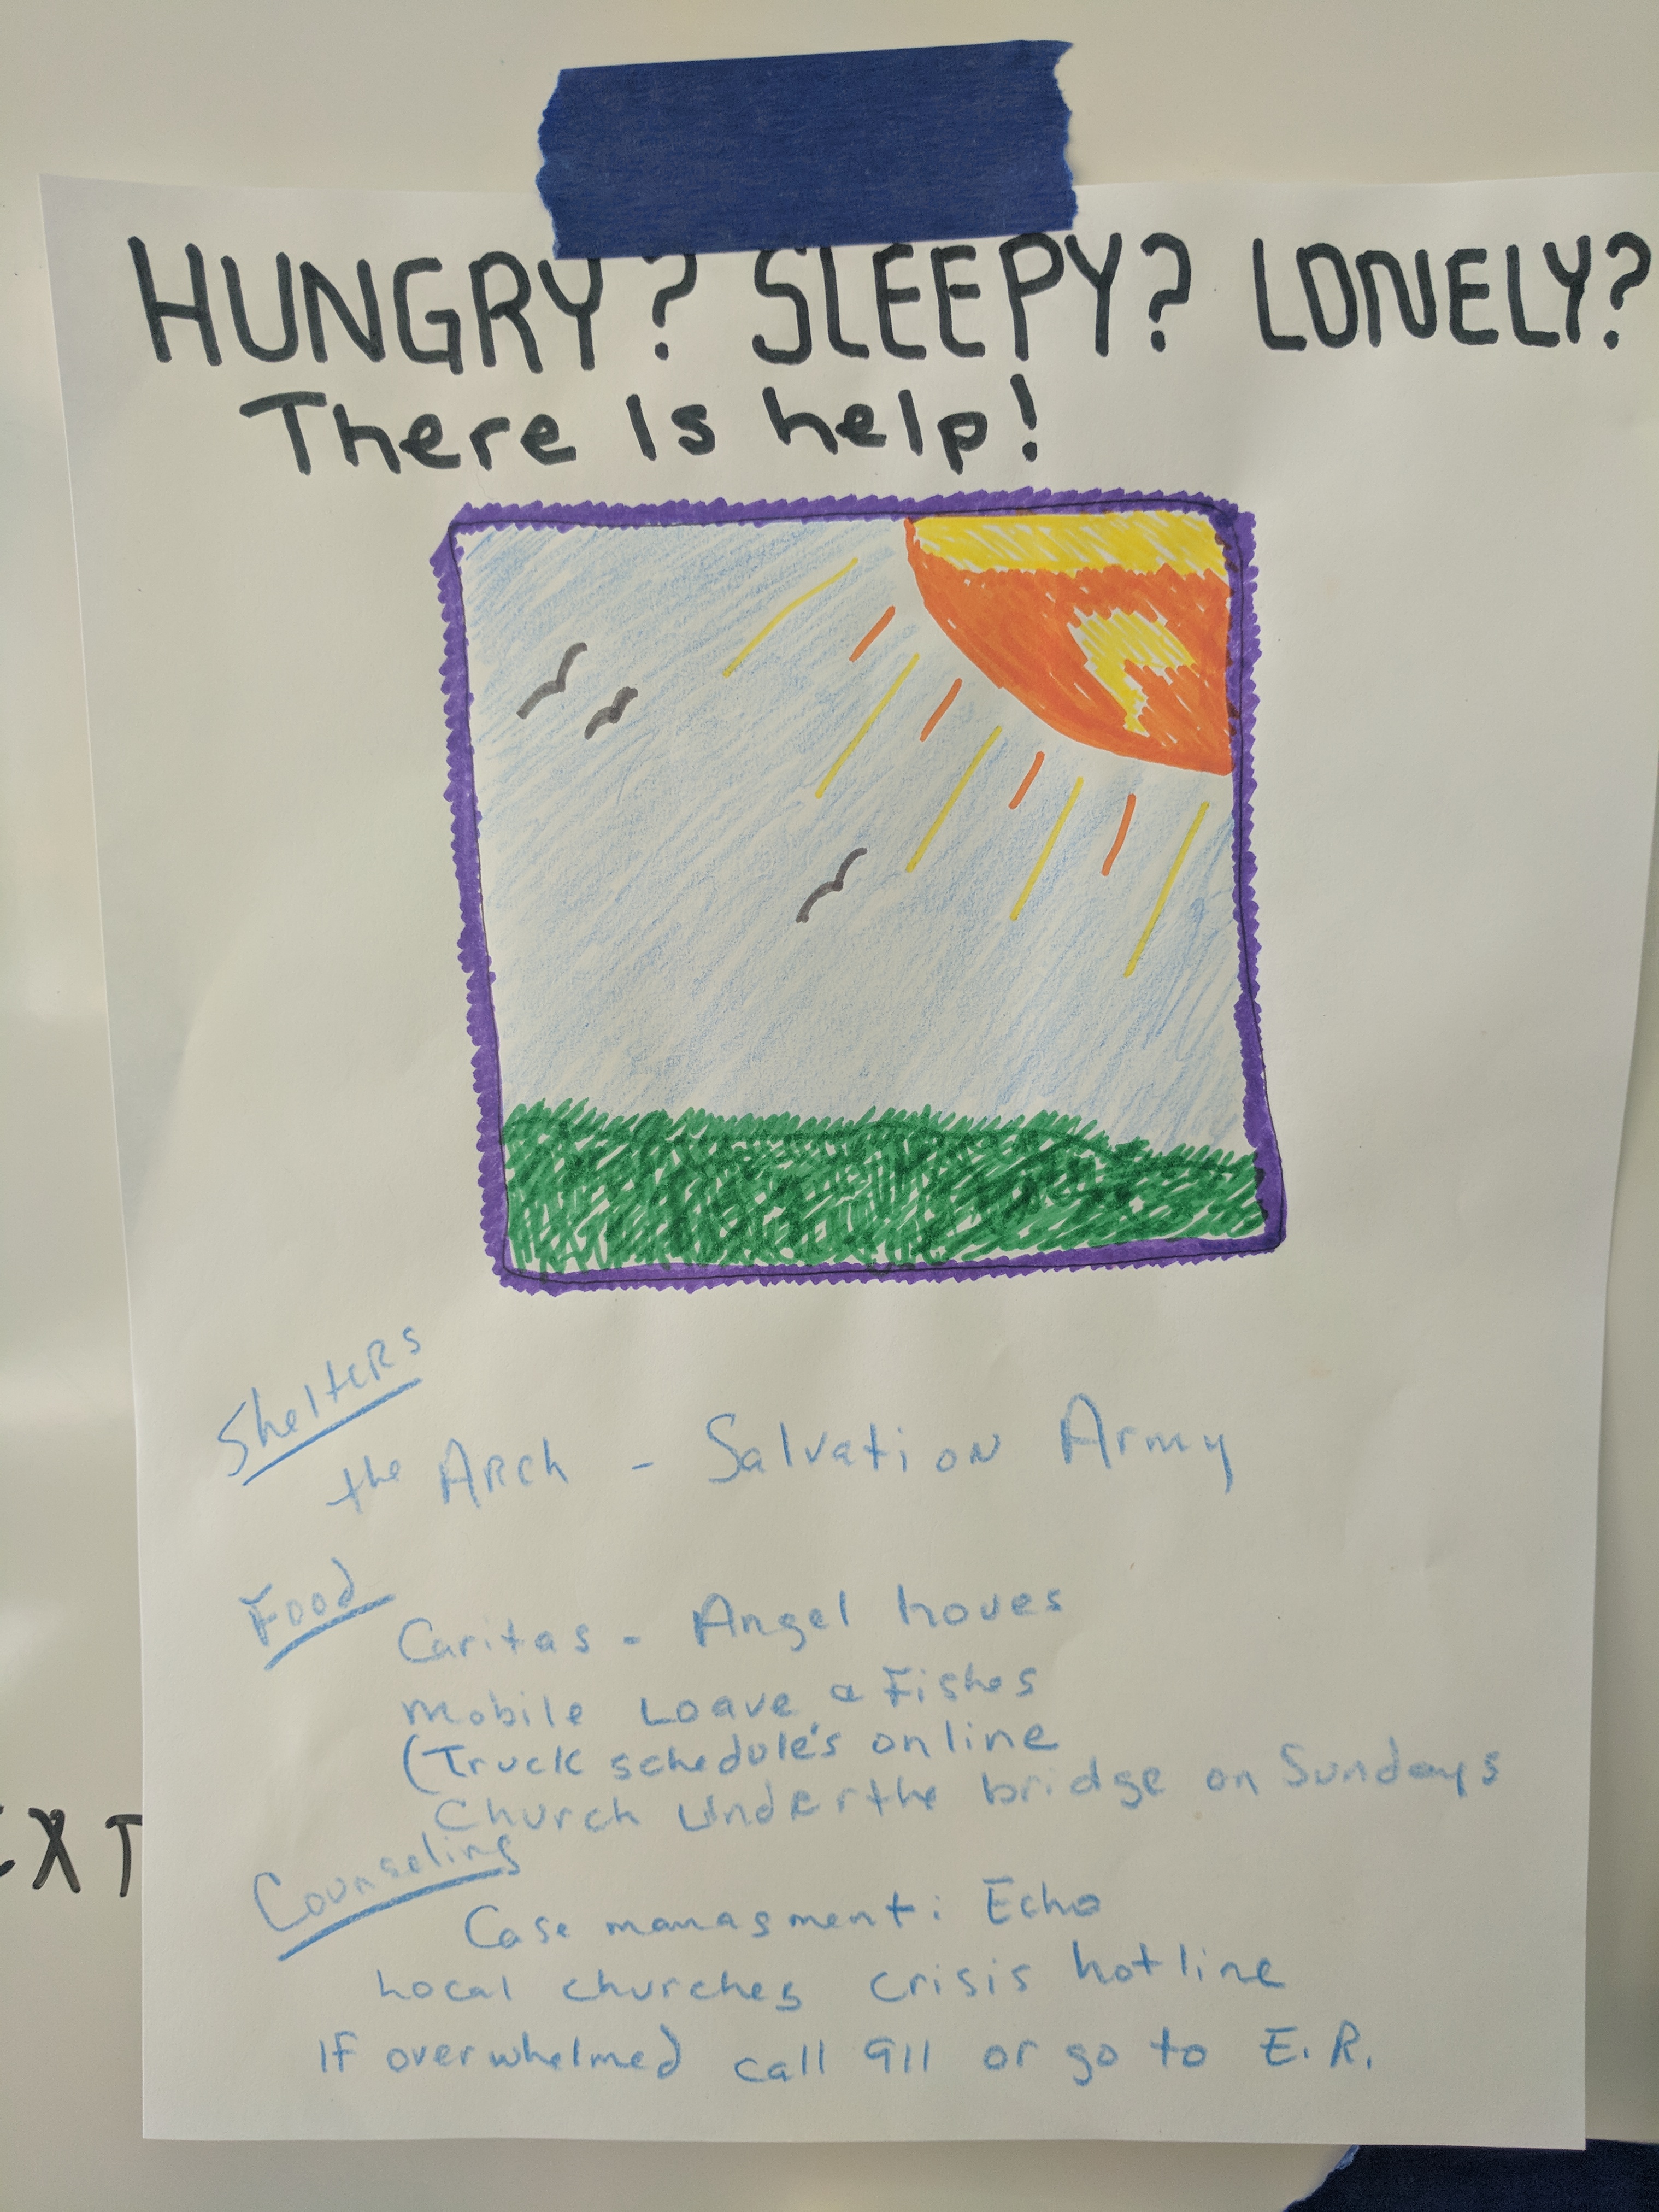 HUNGRY? SLEEPY? LONELY?
There Is help!
Shelters
the Arch - Salvation Army
Food
Caritas - Angel houes
Mobile Loave & Fishes
(Truck schedule's online
Church Under the bridge on Sundays
Counseling
EXT
Case managment: Echo
Local churches crisis hotline
If overwhelmed call 911 or go to E.R.